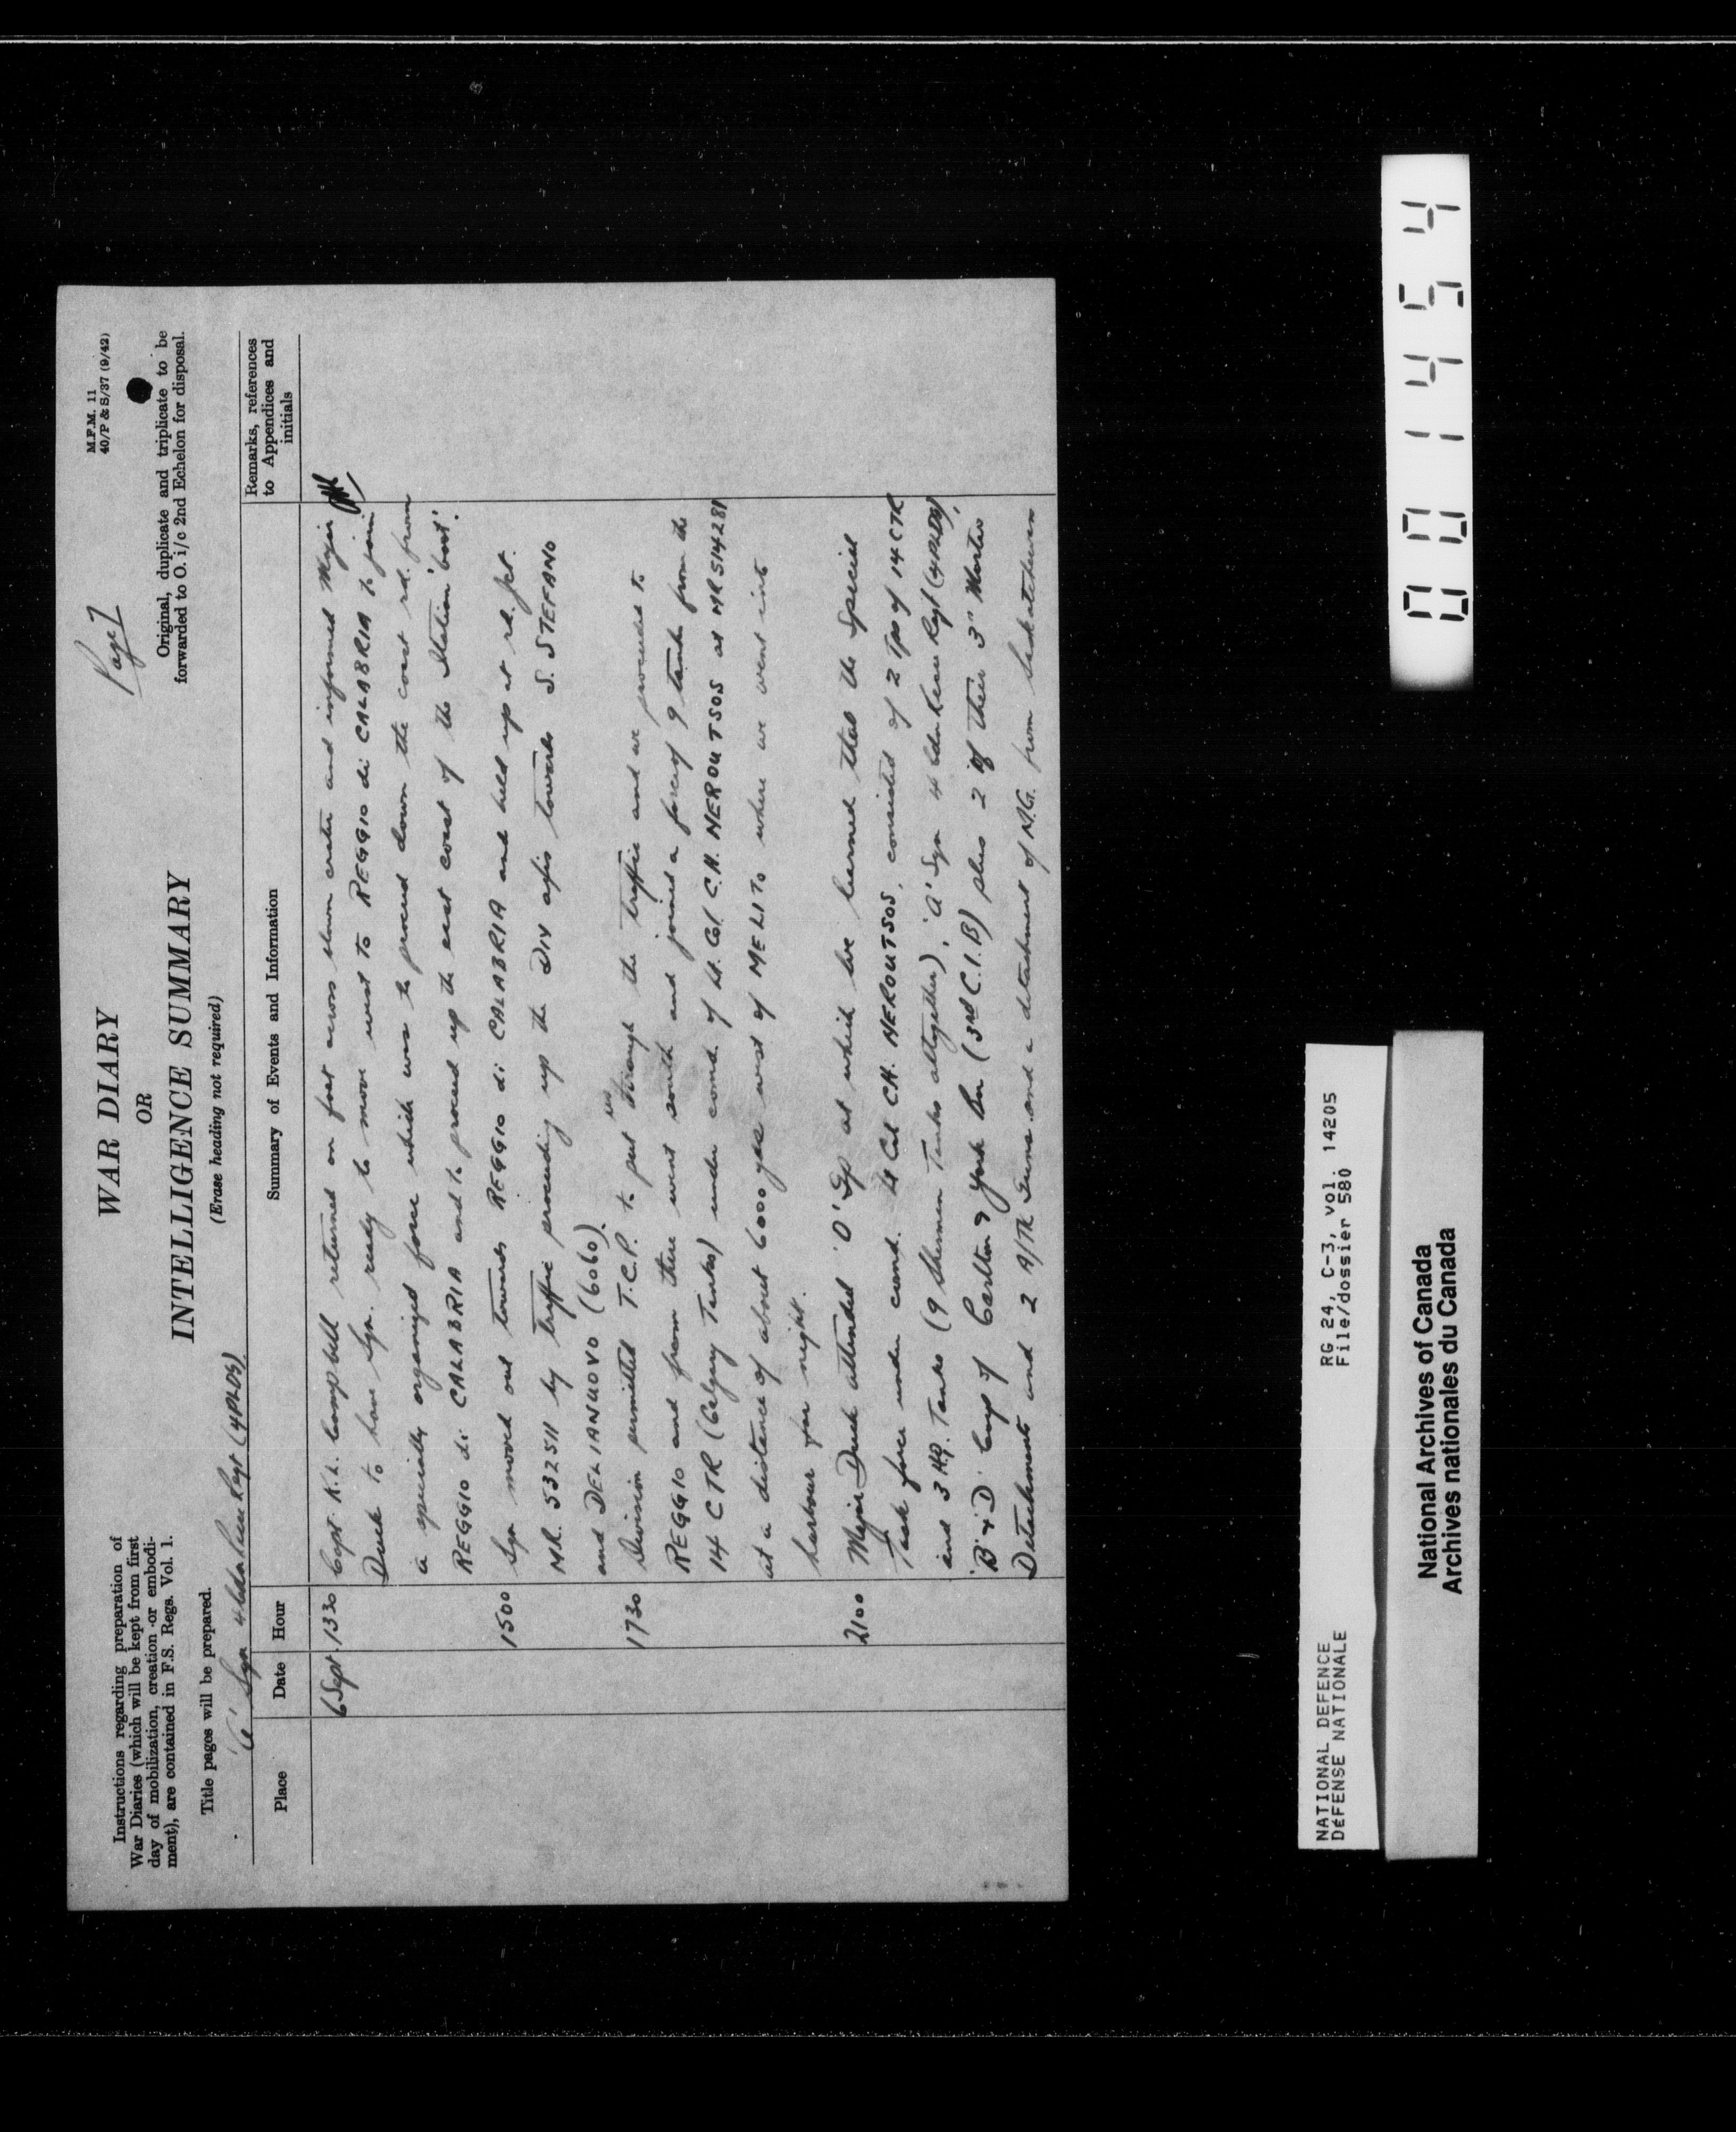 Page 7
M.F.M. 11
40/P & S/37 (9/42)
Instructions regarding preparation of
War Diaries (which will be kept from first
day of mobilization, creation or embodi-
ment), are contained in F.S. Regs. Vol. 1.
Title pages will be prepared.
WAR DIARY
OR
INTELLIGENCE SUMMARY
(Erase heading not required)
Original, duplicate and triplicate to be
forwarded to O. i/c 2nd Echelon for disposal.
Sqn 4 Cdn Recce Regt (4PLDG)
Place Date Hour Summary of Events and Information Remarks, references
to Appendices and
initials
6 Sept. 1330 Capt K.L. Campbell returned on foot across blown crater and informed Major
Duck to have Sqn. ready to move west to REGGIO di CALABRIA to join
a specially organized force which was to proceed down the coast rd. from
REGGIO di CALABRIA and to proceed up the east coast of the Italian 'boot'.
1500 Sqn moved out towards REGGIO di CALABRIA and held up at rd. jct.
MR. 532511 by traffic proceeding up the Div axis towards S. STEFANO
and DELIANUOVO (6060).
1730 Division permitted T.C.P. to put us through the traffic and we proceeded to
REGGIO and from there went south and joined a force of 9 tanks from the
14 CTR (Calgary Tanks) under comd. of Lt. Col. C.H. NEROUTSOS at MR 514281
at a distance of about 6000 yds west of MELITO where we went into
harbour for night.
2100 Major Duck attended 'O' Gp at which he learned that the Special
Task force under comd. Lt Col C.H. NEROUTSOS, consisted of 2 Tps of 14 CTR
and 3 HQ. Tanks (9 Sherman Tanks altogether), 'A' Sqn 4 Cdn Recce Regt (4PLDG),
'B' & 'D' Coys of Carlton & York Bn (3rd C.I.B) plus 2 of their 3" Mortar
Detachments and 2 A/Tk Guns and a detachment of M.G. from Saskatchewan
0001454
NATIONAL DEFENCE
DÉFENSE NATIONALE
RG 24, C-3, vol. 14205
File/dossier 580
National Archives of Canada
Archives nationales du Canada